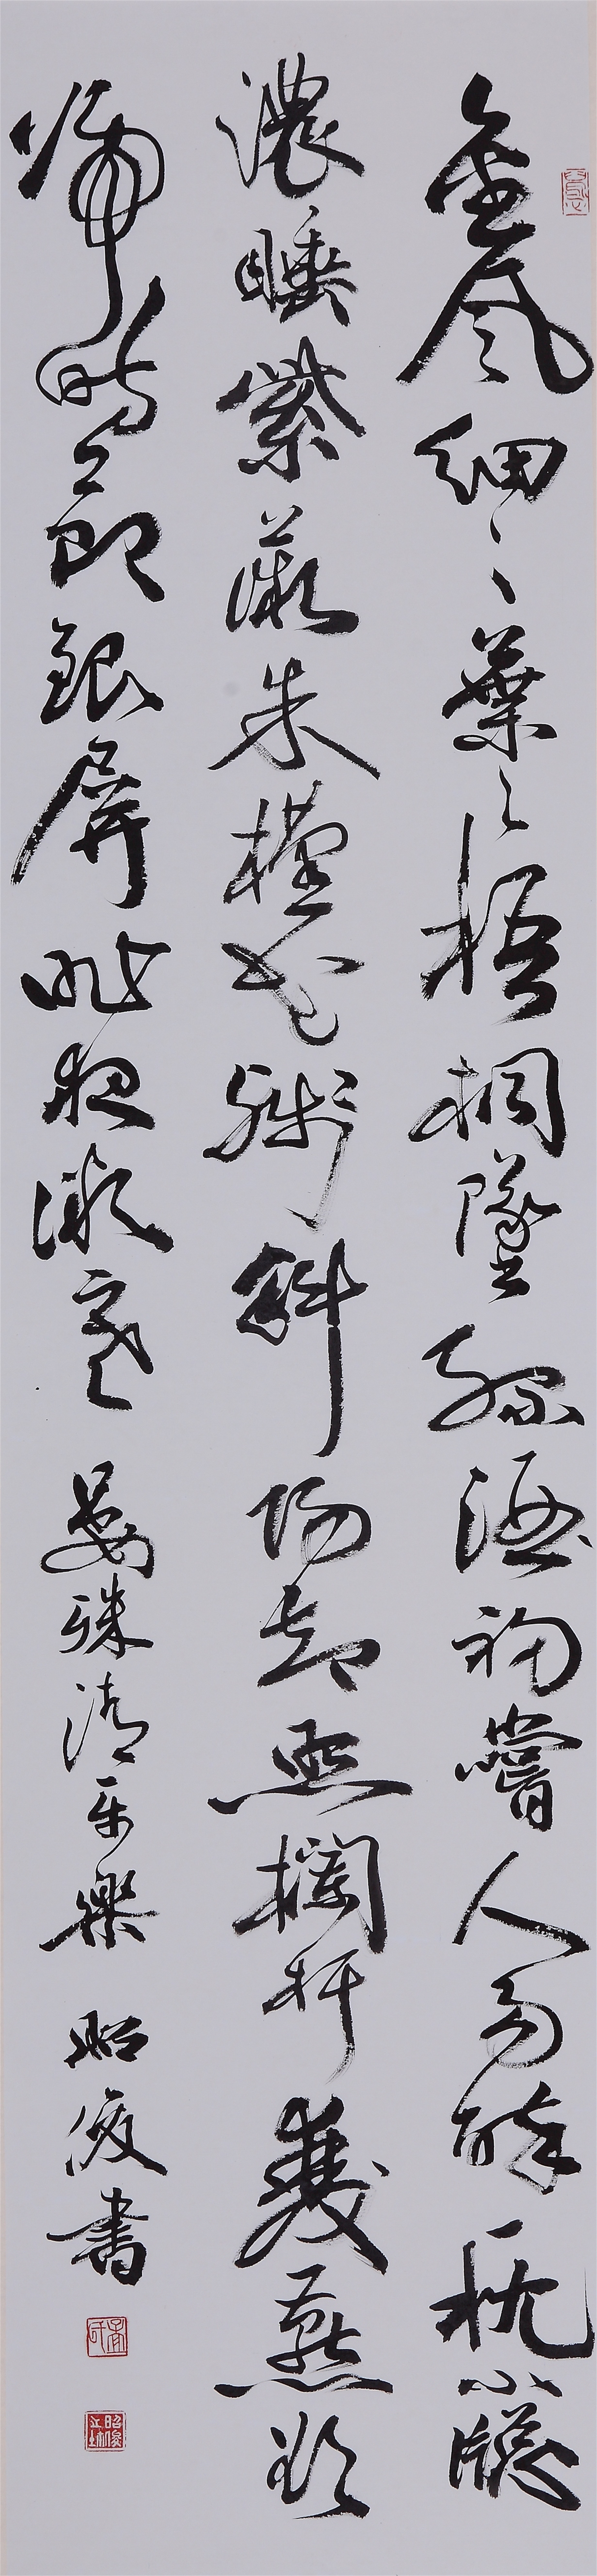 金風細々葉々梧桐墜綠酒初嘗人易醉一枕小牕
濃睡紫薇朱槿花殘斜陽却照欄杆雙燕欲
歸時節銀屏昨夜微寒 晏殊清平樂 昭俊書